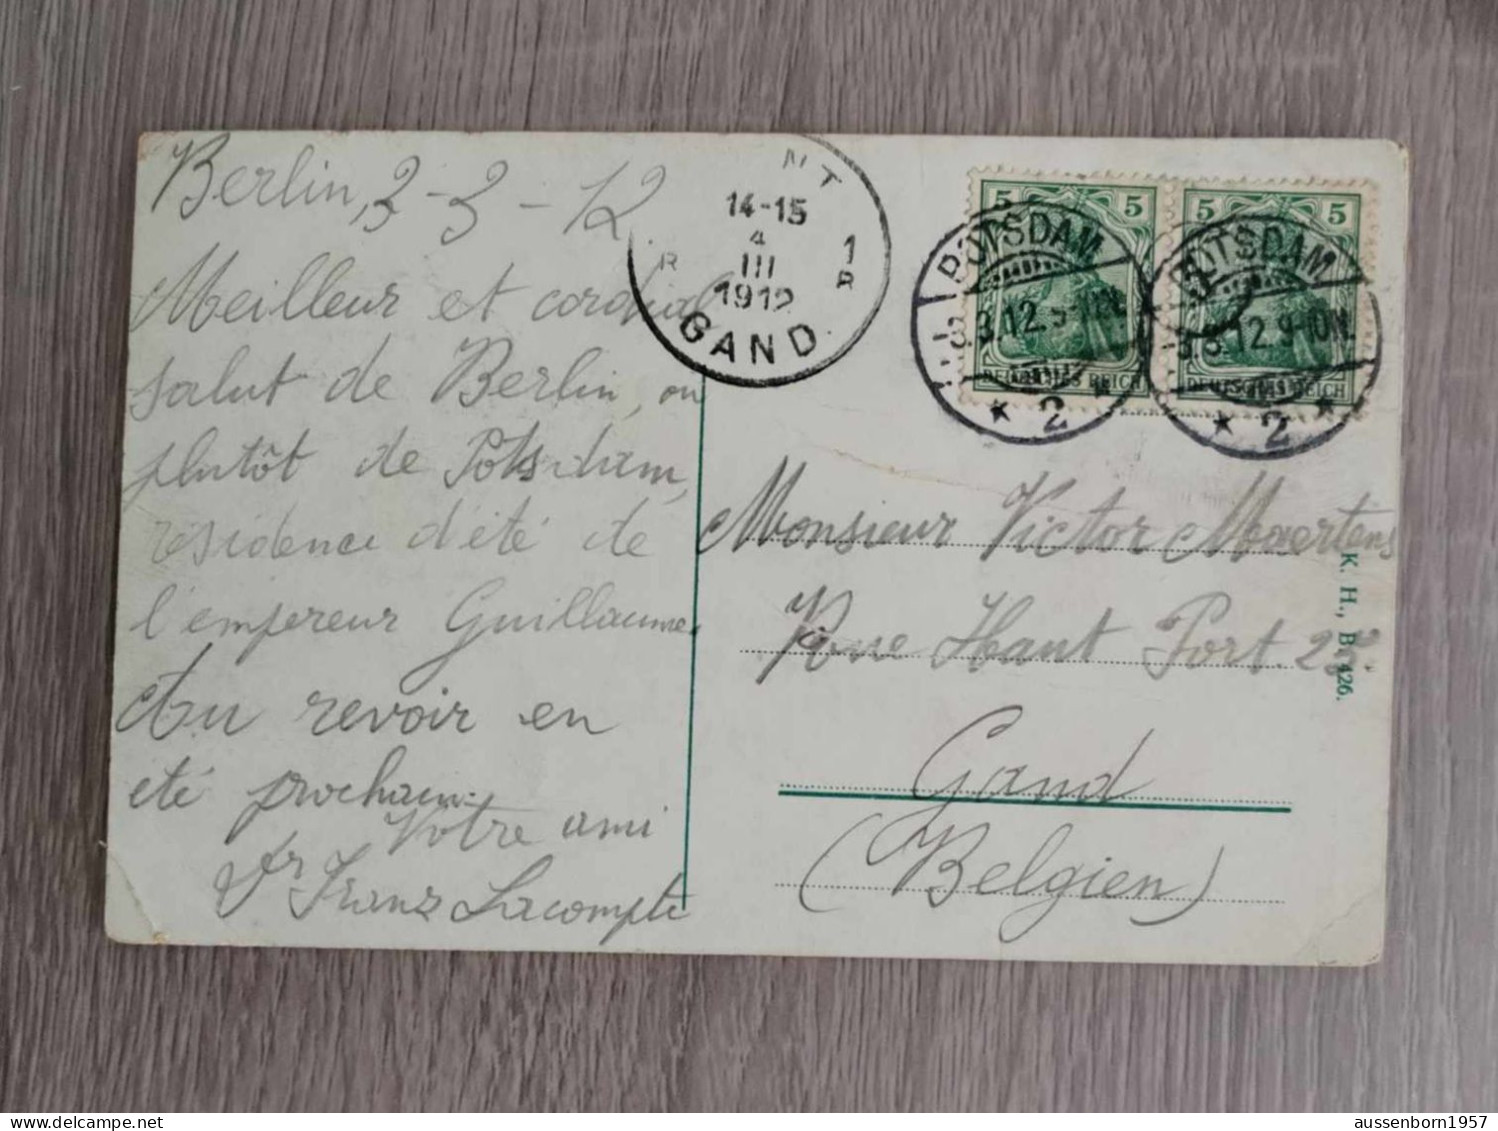 Berlin, 3-3-12.
Meilleur et cordial
salut de Berlin, ou
plutôt de Potsdam,
résidence d'été de
l'empereur Guillaume.
Au revoir en
été prochain.
Votre ami
Dr Franz Lacompte
NT
14-15
4
III
1912
R
1
R
GAND
5 5
DEUTSCHES REICH
5 5
DEUTSCHES REICH
POTSDAM
3.3.12.9-10N.
* 2 *
POTSDAM
3.3.12.9-10N.
* 2 *
Monsieur Victor Maertens
Rue Haut Port 25
Gand
(Belgien)
K. H., B. 426.
aussenborn1957